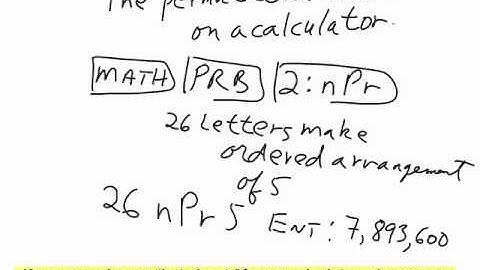 The
on a calculator.
MATH PRB 2:nPr
26 Letters make
ordered arrangement
of 5
26 nPr 5 ENT: 7,893,600